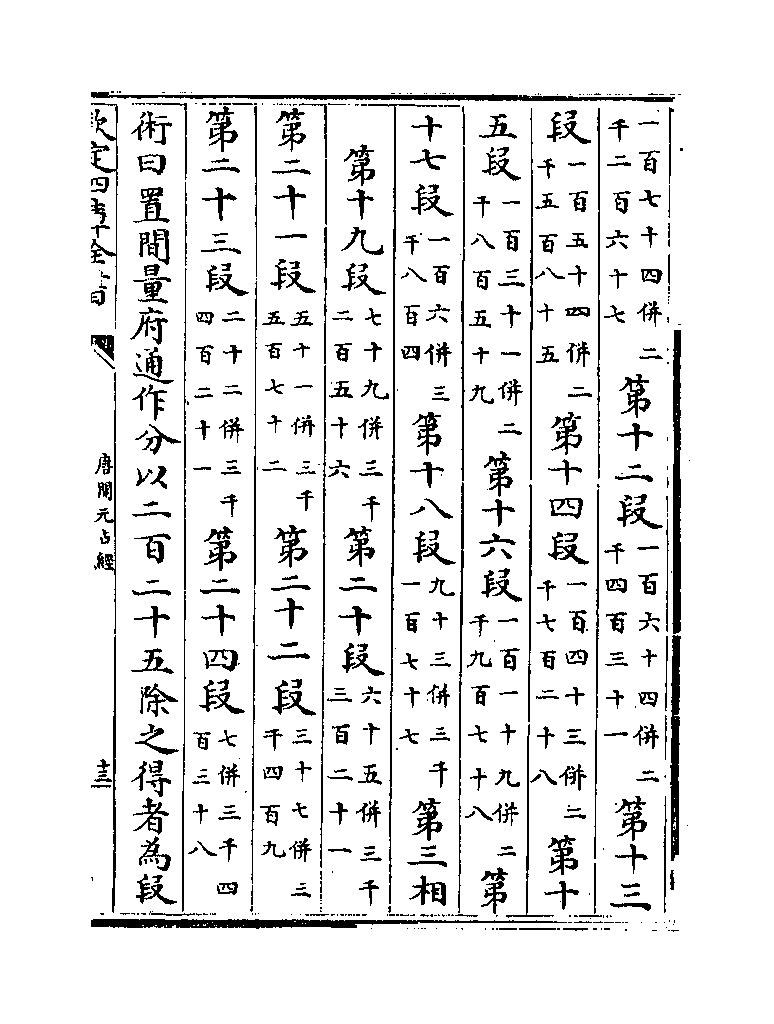 一百七十四併二千二百六十七第十二段一百六十四併二千四百三十一第十三
段一百五十四併二千五百八十五第十四段一百四十三併二千七百二十八第十
五段一百三十一併二千八百五十九第十六段一百一十九併二千九百七十八第
十七段一百六併三千八百四第十八段九十三併三千一百七十七第三相
第十九段七十九併三千二百五十六第二十段六十五併三千三百二十一
第二十一段五十一併三千五百七十二第二十二段三十七併三千四百九
第二十三段二十二併三千四百二十一第二十四段七併三千四百三十八
術曰置間量府通作分以二百二十五除之得者為段
欽定四庫全書
唐開元占經
十三